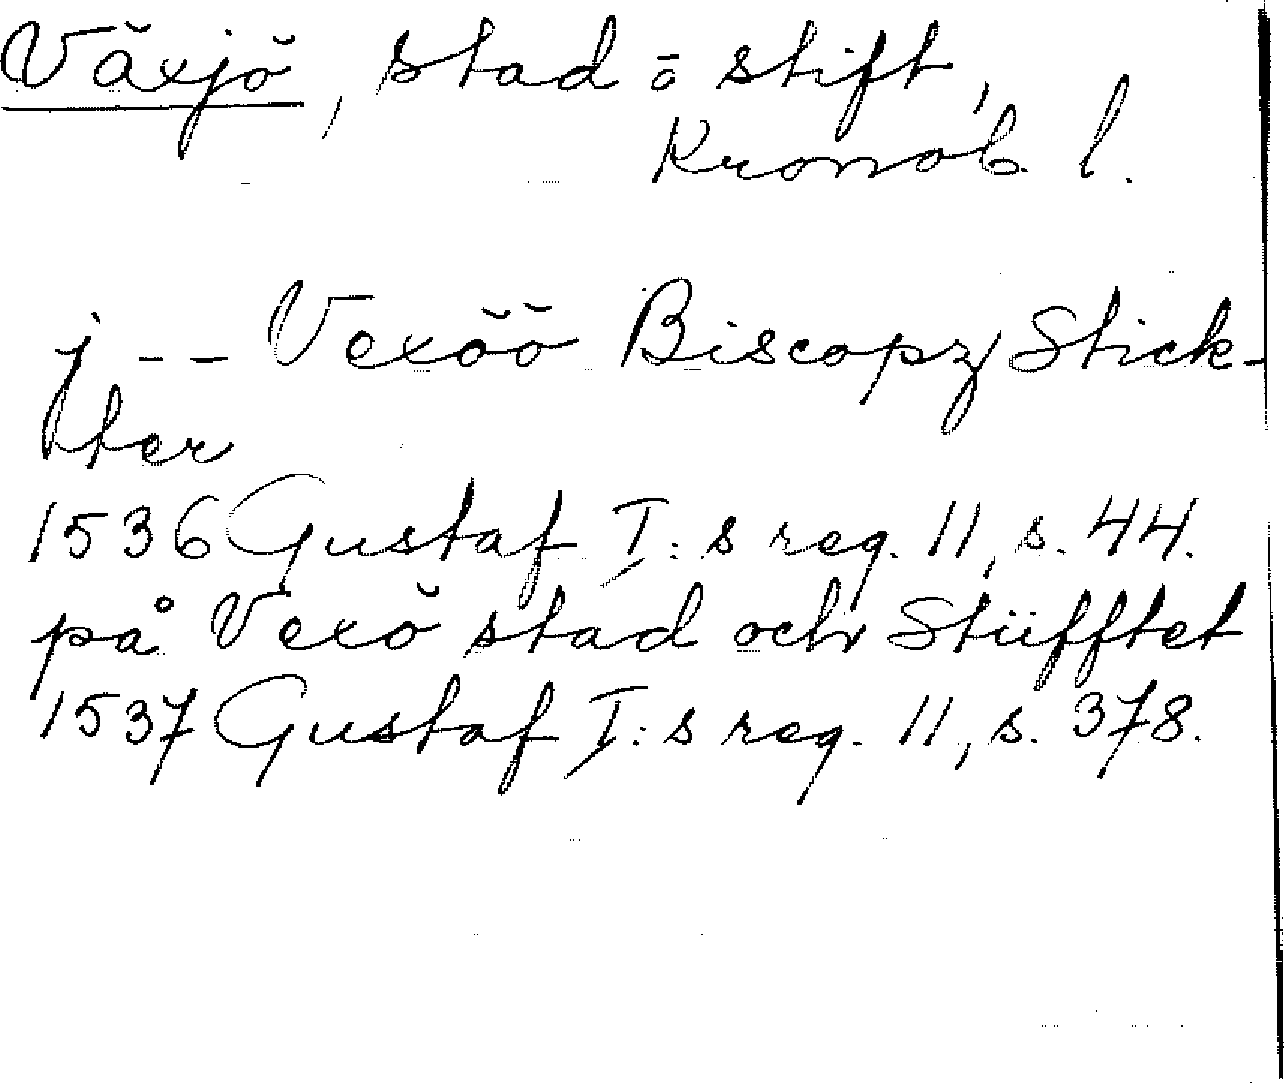 Växjö, stad o stift,
Kronob. l.
j -- Vexöö Biscopz Stick-
ter
1536 Gustaf I:s reg. 11, s. 44.
på Vexö stad och Stüfftet
1537 Gustaf I:s reg. 11, s. 378.